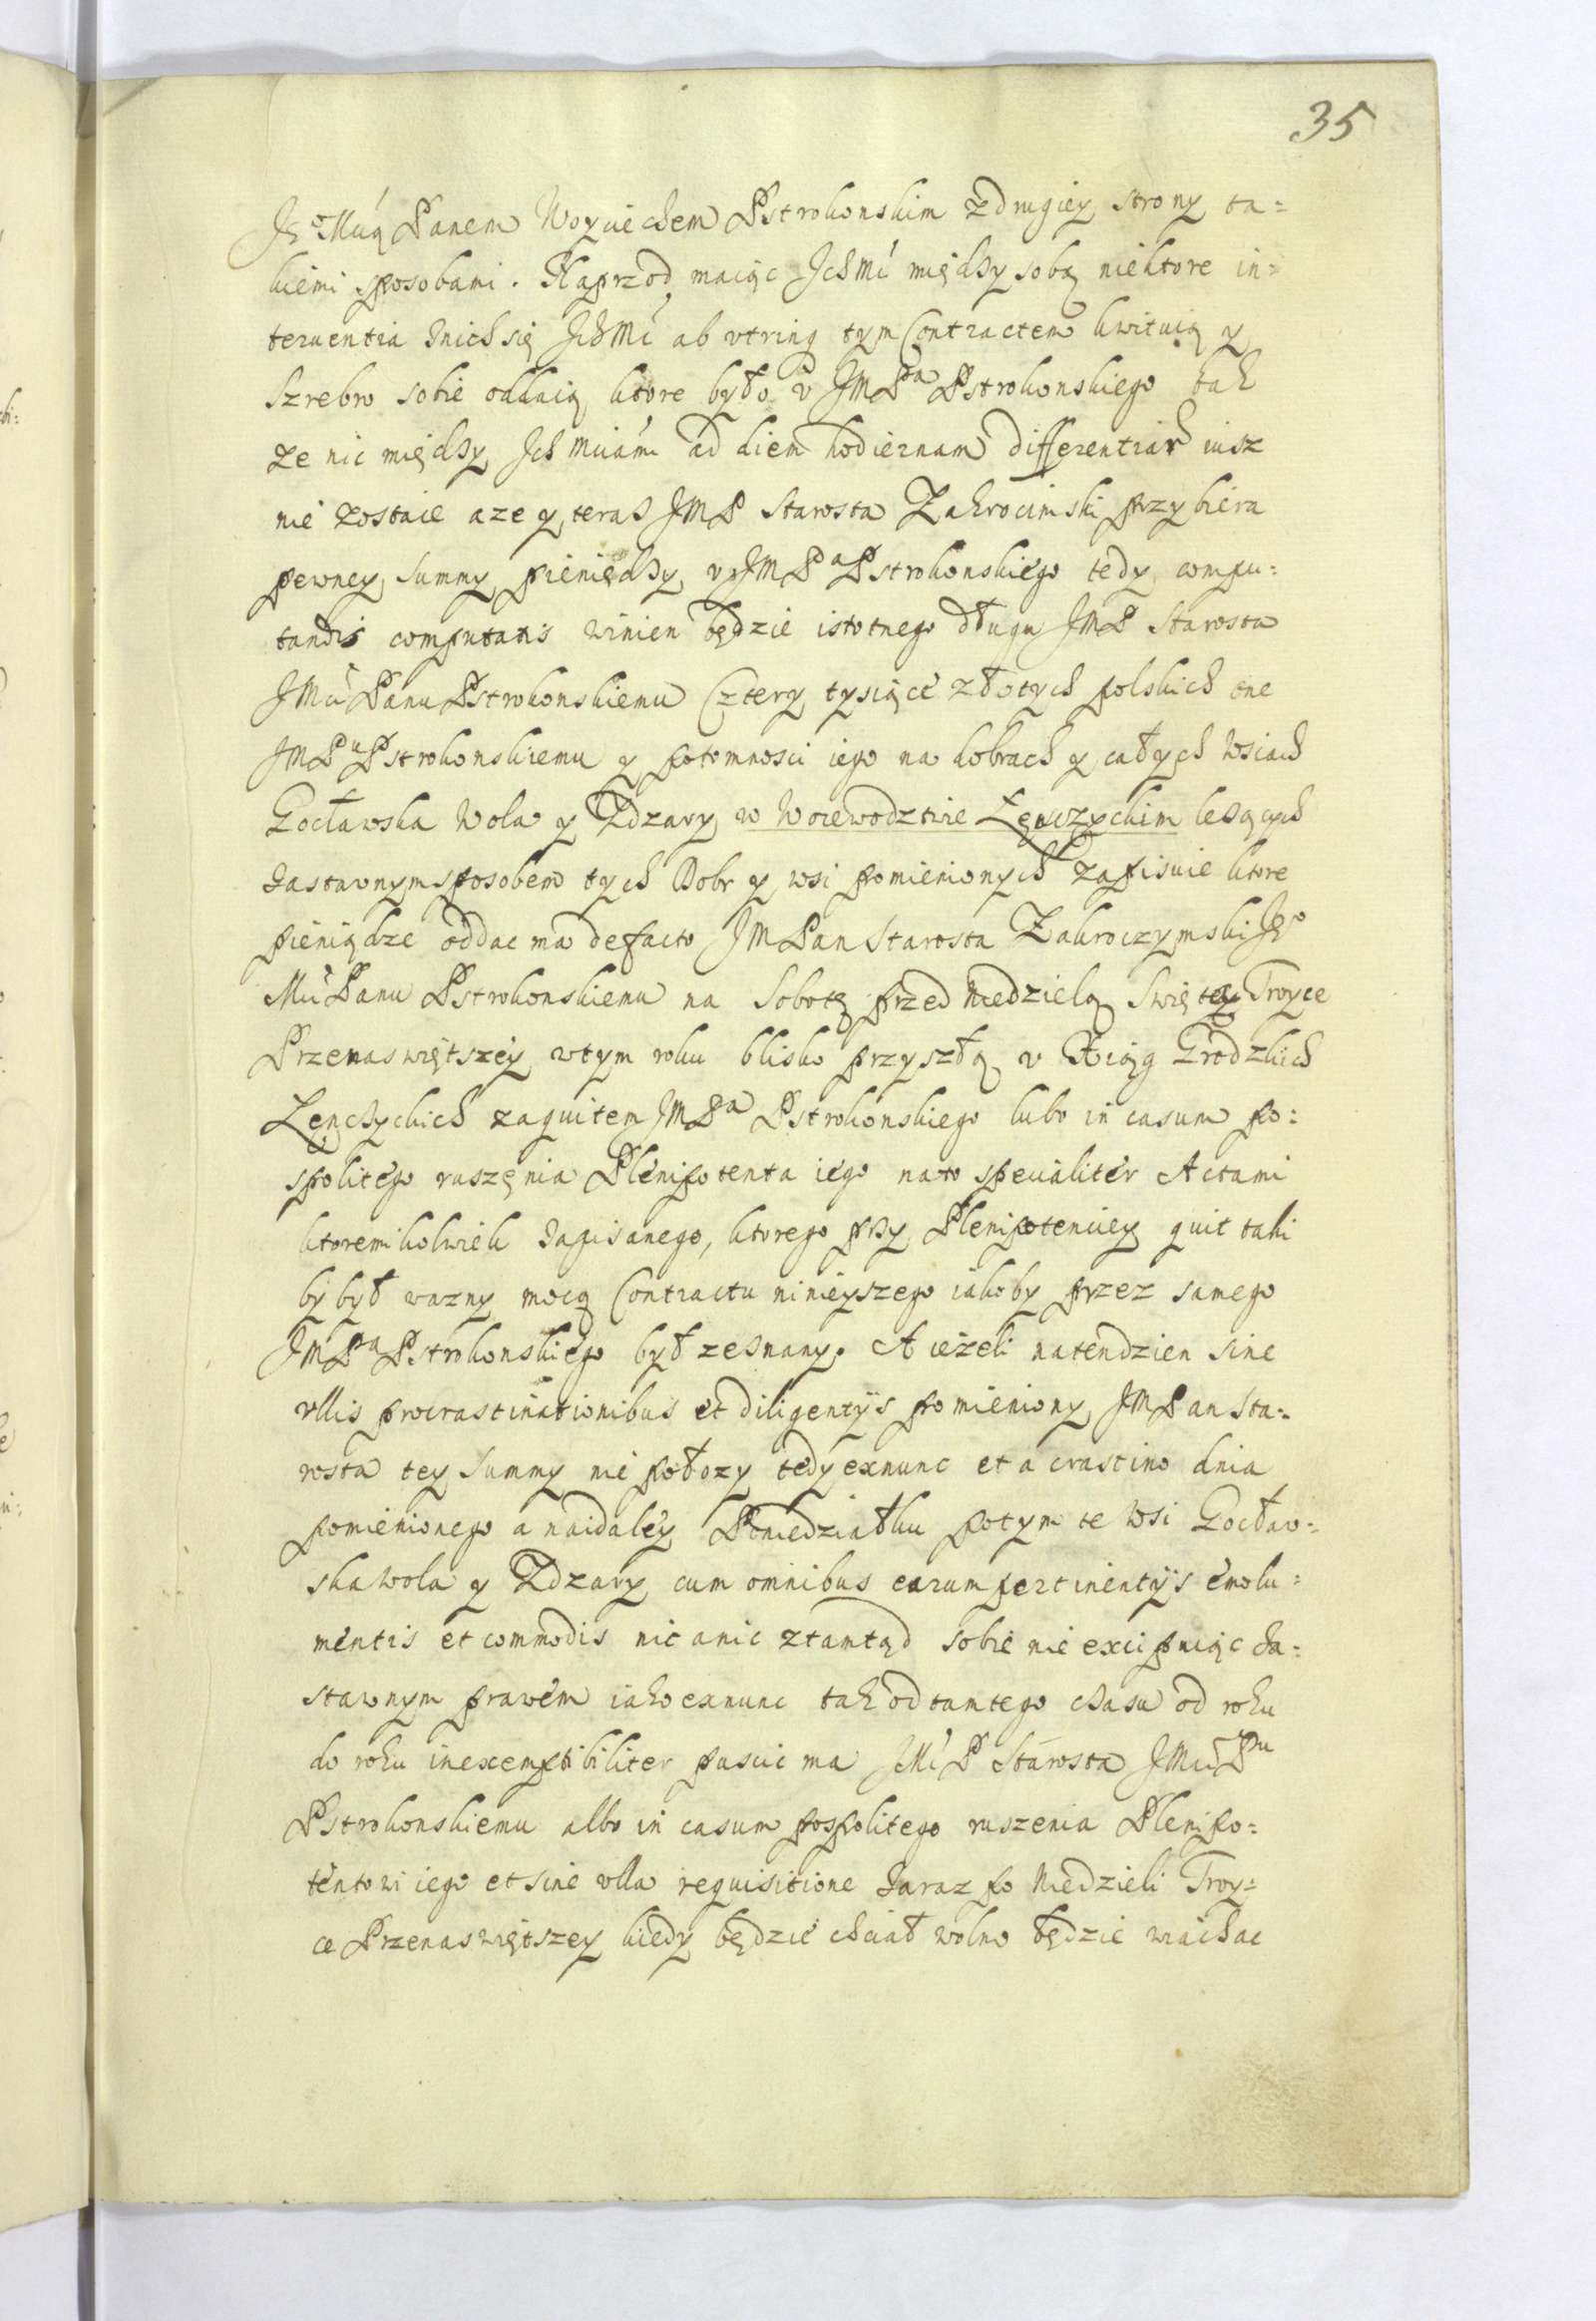 35
Je° Mcią Panem Woyciechem Pstrokonskim z drugiey strony ta=
kiemi sposobami. Naprzod maiąc Ich Mć między sobą niektore in=
teruentia znich się Ich Mć ab vtrinq tym Contractem kwituią y
Szrebro sobie oddaią ktore było v JMPa Pstrokonskiego tak
ze nic między Ich Mciami ad diem hodiernam differentiar iusz
nie zostaie aze y teraz JMP Starosta Zakrocimski przybiera
pewney summy pieniędzy v JMPa Pstrokonskiego tedy compu=
tandis computatis winien będzie istotnego długu JMP Starosta
JMci Panu Pstrokonskiemu Cztery tysiące złotych polskich one
JMPu Pstrokonskiemu y potomnosci iego na dobrach y całych wsiach
Gocławska Wola y Zdzary w Woiewodztwie Łęczyckim lezących
zastawnym sposobem tych Dobr y wsi pomienionych zapisuie ktore
pieniądze oddac ma defacto JMPan Starosta Zakroczymski Je°
Mci Panu Pstrokonskiemu na Sobotę przed Niedzielą Swiętey Troyce
Przenaswiętszey wtym roku blisko przyszłą v Xiąg Grodzkich
Lenczyckich zaquitem JMPa Pstrokonskiego lubo in casum po=
spolitego ruszenia Plenipotenta iego nato specialiter Actami
ktoremikolwiek zapisanego, ktorego przy Plenipotenciey quit taki
by był wazny mocą Contractu ninieyszego iakoby przez samego
JMPa Pstrokonskiego był zeznany. A iezeli natendzien sine
vllis procrastinationibus et diligentÿs pomieniony JMPan Sta=
rosta tey Summy nie połozy tedy exnunc et a crastino dnia
pomienionego a naidaley Poniedziałku potym te wsi Gocław=
ska wola y Zdzary cum omnibus earum pertinentÿs emolu=
mentis et commodis nic a nic ztamtąd sobie nie excipuiąc za=
stawnym prawem iako exnunc tak od tamtego czasu od roku
do roku inexemptibiliter puscic ma JMć P Starosta JMci Pu
Pstrokonskiemu albo in casum pospolitego ruszenia Plenipo=
tentowi iego et sine vlla requisitione zaraz po Niedzieli Troy=
ce Przenaswiętszey kiedy będzie chciał wolno będzie wiachac